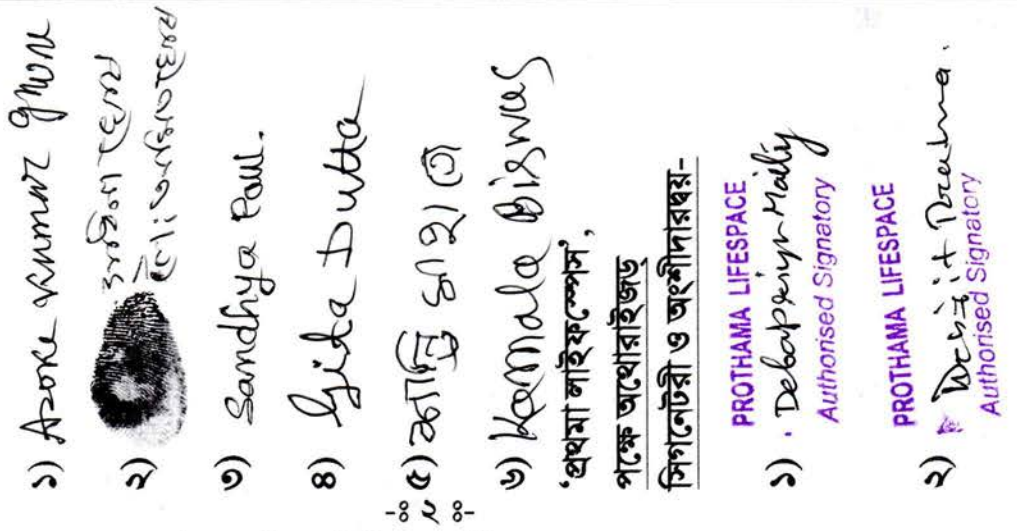 ১) Asoke Kumar ghosh
২)
৩) Sandhya Paul.
৪) Gita Dutta
৫)
৬) Kamala Biswas
-ঃ ২ ঃ-
'প্রথমা লাইফস্পেস',
পক্ষে অথোরাইজড্
সিগনেটরী ও অংশীদারদ্বয়-
PROTHAMA LIFESPACE
১) . Debapriya Maity
Authorised Signatory
PROTHAMA LIFESPACE
২)
Authorised Signatory